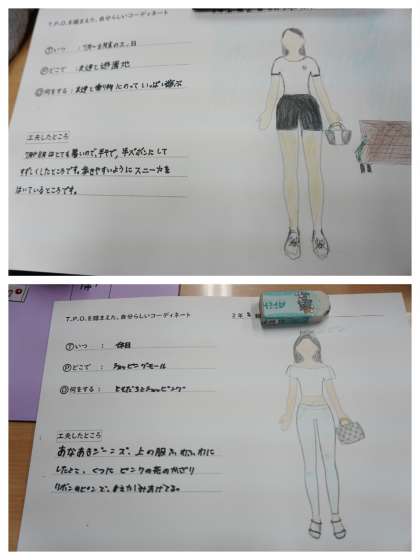 T.P.O.を踏まえた、自分らしいコーディネート
Ⓣいつ :
Ⓟどこで : 友達と遊園地
Ⓞ何をする : 友達と乗り物にのっていっぱい遊ぶ
工夫したところ
7月や8月はとても暑いので、半そで、半ズボンにして
すずしくしたところです。歩きやすいようにスニーカーを
はいているところです。
T.P.O.を踏まえた、自分らしいコーディネート
2年
Ⓣいつ : 休日
Ⓟどこで : ショッピングモール
Ⓞ何をする : ともだちとショッピング
工夫したところ
あなあきジーンズ、上の服ふわふわに
したとこ、くつにピンクの花のかざり
リボンのピンで、まえがみあげてる。